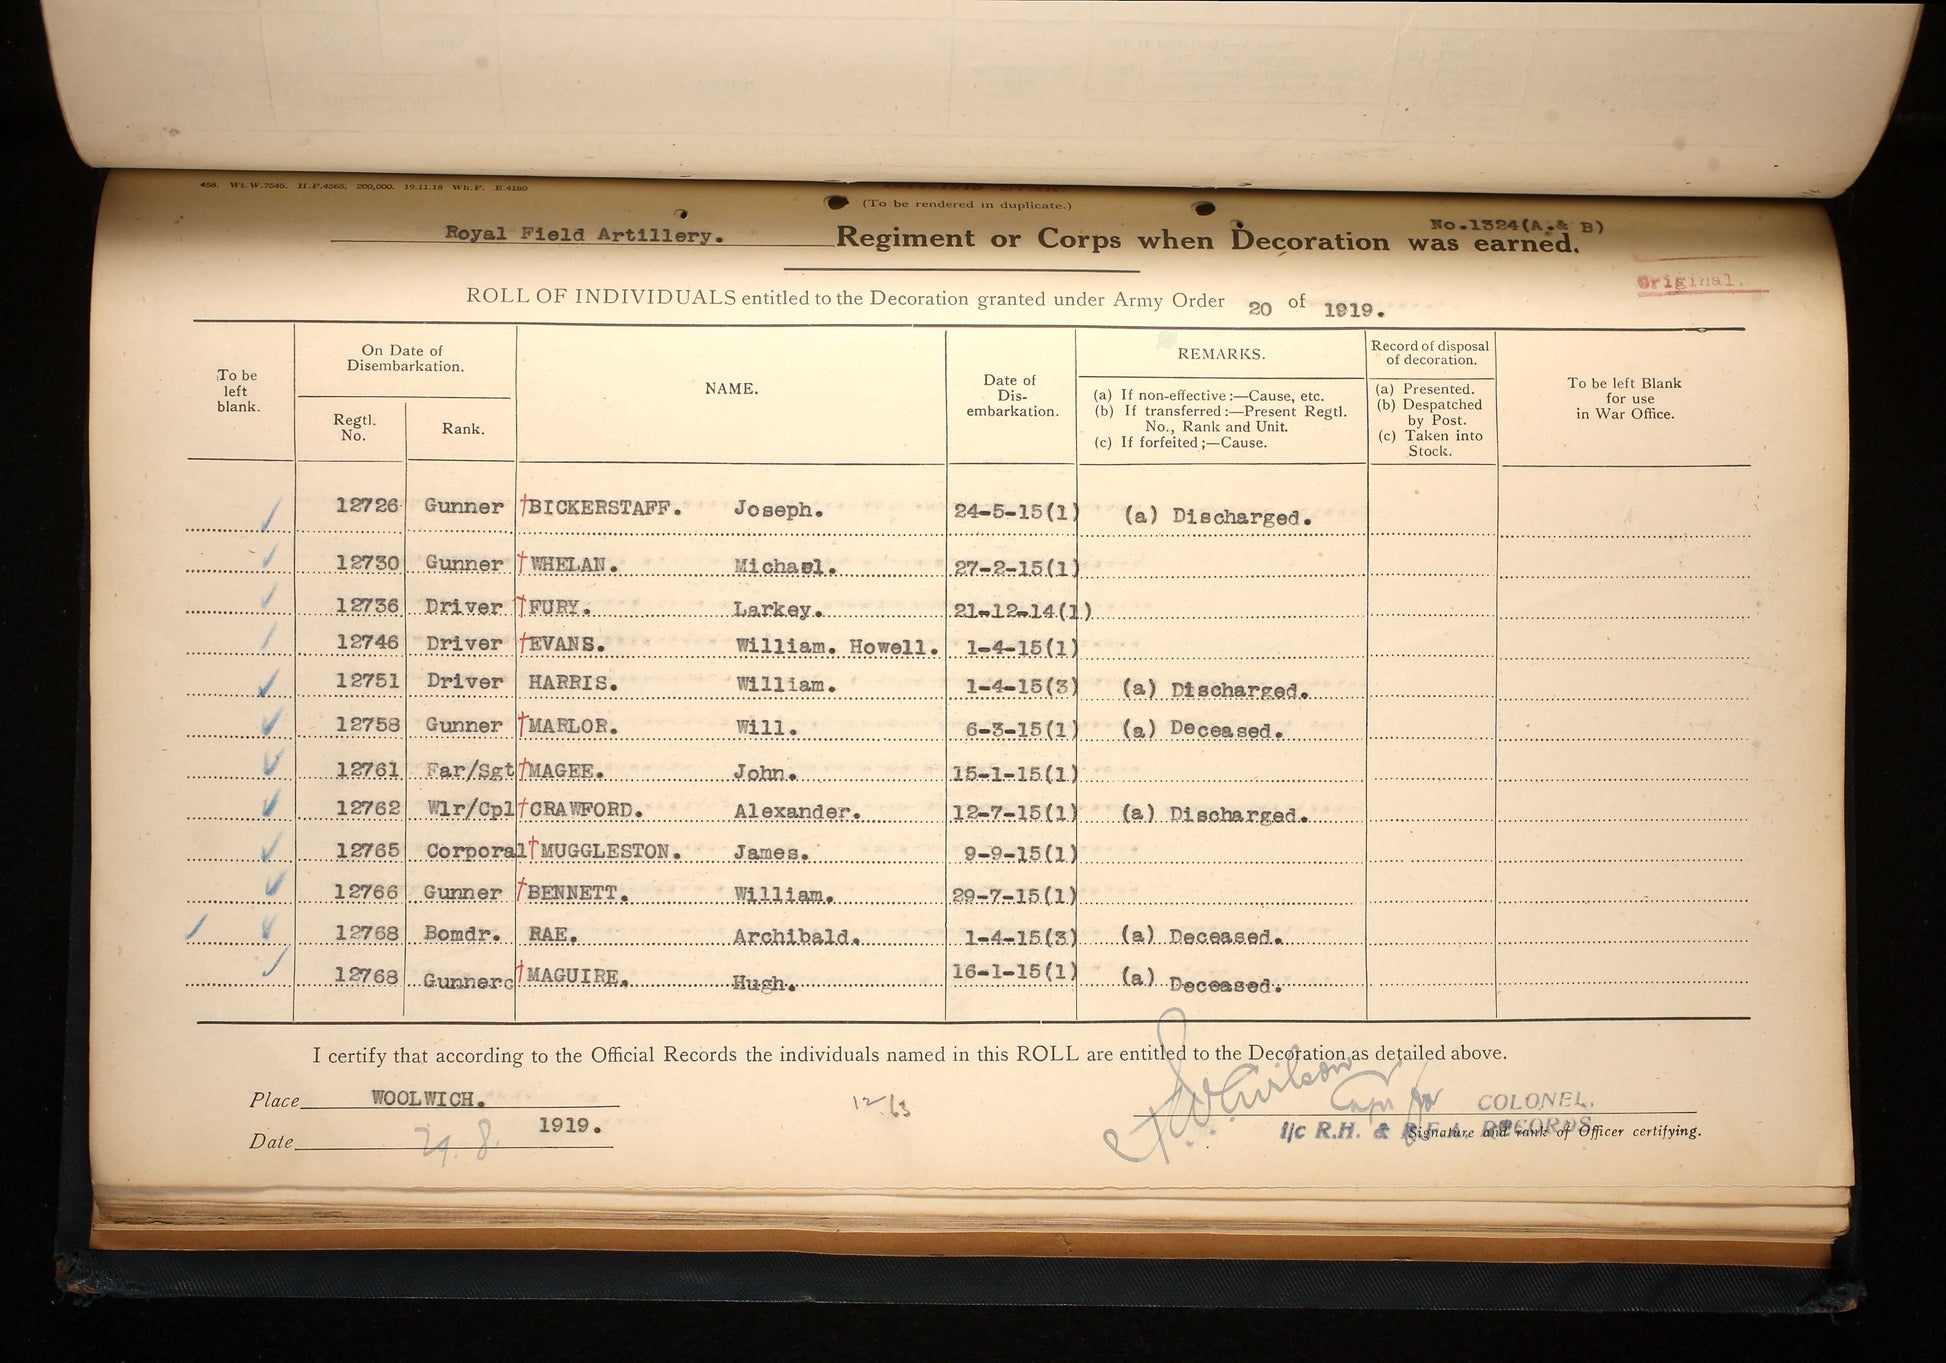 458. Wt.W.7545. H.P.4565. 200,000. 19.11.18 Wh.P. E.4180
(To be rendered in duplicate.)
No.1324(A.& B)
Royal Field Artillery. Regiment or Corps when Decoration was earned.
Original.
ROLL OF INDIVIDUALS entitled to the Decoration granted under Army Order 20 of 1919.
To be left blank.
On Date of Disembarkation.
Regtl. No.
Rank.
NAME.
Date of Dis-embarkation.
REMARKS.
(a) If non-effective:—Cause, etc.
(b) If transferred:—Present Regtl. No., Rank and Unit.
(c) If forfeited;—Cause.
Record of disposal of decoration.
(a) Presented.
(b) Despatched by Post.
(c) Taken into Stock.
To be left Blank for use in War Office.
12726 Gunner †BICKERSTAFF. Joseph. 24-5-15(1) (a) Discharged.
12730 Gunner †WHELAN. Michael. 27-2-15(1)
12736 Driver †FURY. Larkey. 21-12-14(1)
12746 Driver †EVANS. William. Howell. 1-4-15(1)
12751 Driver HARRIS. William. 1-4-15(3) (a) Discharged.
12758 Gunner †MARLOR. Will. 6-3-15(1) (a) Deceased.
12761 Far/Sgt †MAGEE. John. 15-1-15(1)
12762 Wlr/Cpl †CRAWFORD. Alexander. 12-7-15(1) (a) Discharged.
12765 Corporal †MUGGLESTON. James. 9-9-15(1)
12766 Gunner †BENNETT. William. 29-7-15(1)
12768 Bomdr. RAE. Archibald. 1-4-15(3) (a) Deceased.
12768 Gunner †MAGUIRE. Hugh. 16-1-15(1) (a) Deceased.
I certify that according to the Official Records the individuals named in this ROLL are entitled to the Decoration as detailed above.
Place WOOLWICH.
Capt for COLONEL.
Date 29.8. 1919.
I/c R.H. & R.F.A. RECORDS
Signature and rank of Officer certifying.